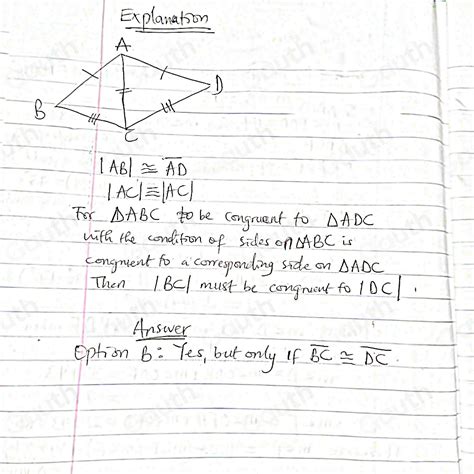 Explanation
A
B
D
C
|AB| ≅ A̅D̅
|AC| ≡ |AC|
For △ABC to be congruent to △ADC
with the condition of sides on △ABC is
congruent to a corresponding side on △ADC
Then |BC| must be congruent to |DC|.
Answer
Option B: Yes, but only if B̅C̅ ≅ D̅C̅.